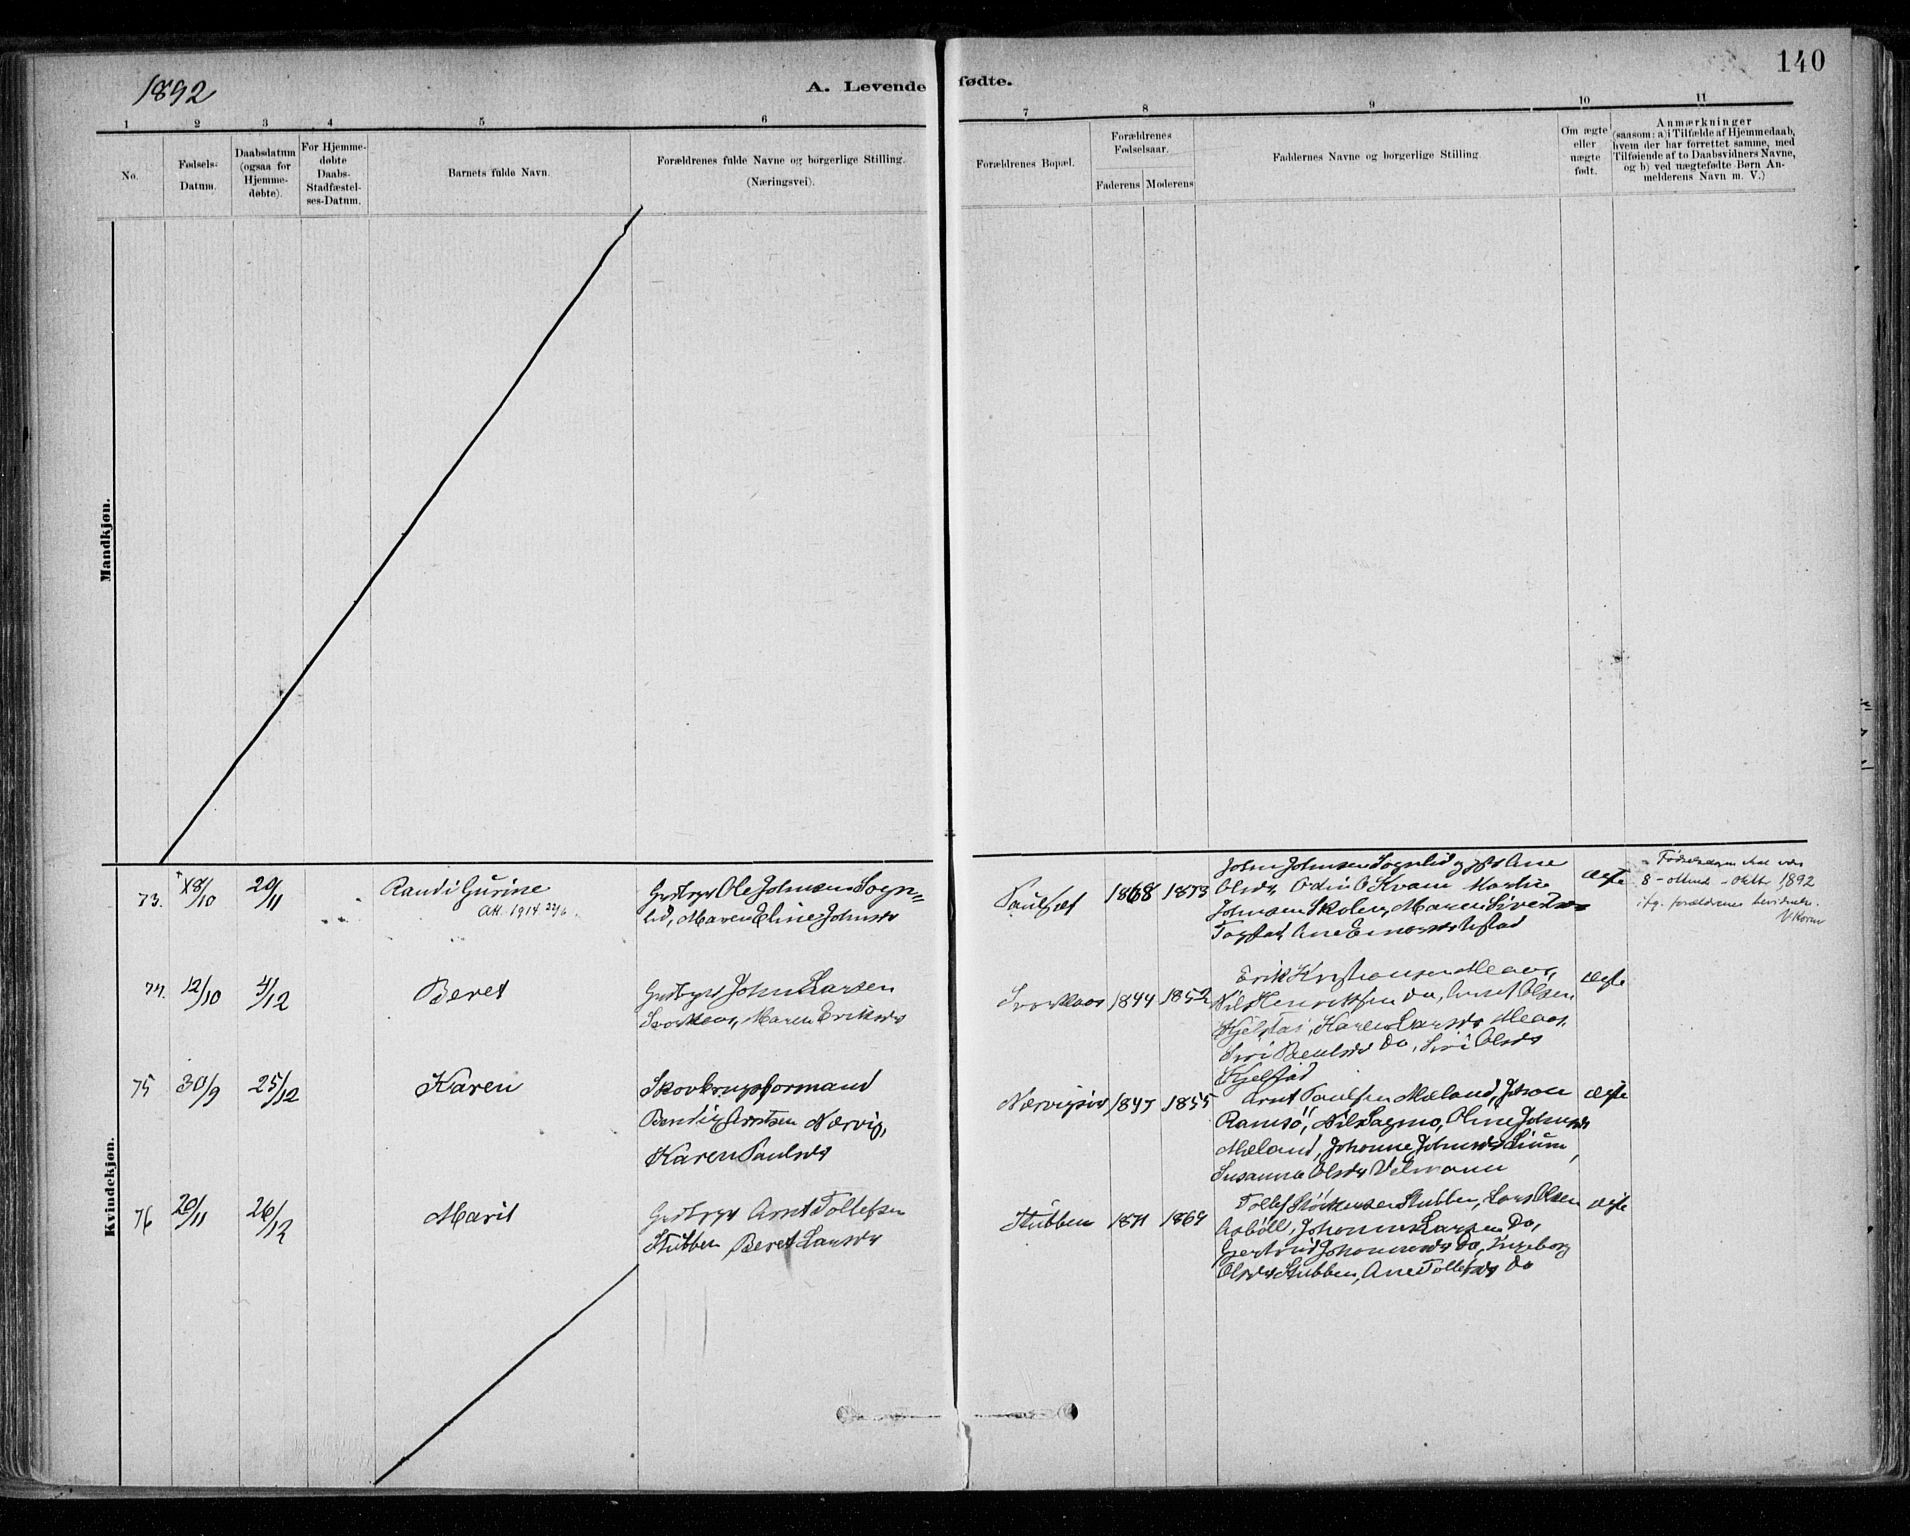 1892
A. Levende fødte.
140
1 2 3 4 5 6 7 8 9 10 11
No.
Fødsels-
Datum.
Daabsdatum
(ogsaa for
Hjemme-
døbte).
For Hjemme-
døbte
Daabs-
Stadfæstel-
ses-Datum.
Barnets fulde Navn.
Forældrenes fulde Navne og borgerlige Stilling.
(Næringsvei).
Forældrenes Bopæl.
Forældrenes
Fødselsaar.
Faderens Moderens
Faddernes Navne og borgerlige Stilling.
Om ægte
eller
uægte
født.
Anmærkninger
(saasom: a) i Tilfælde af Hjemmedaab,
hvem der har forrettet samme, med
Tilføiende af to Daabsvidners Navne,
og b) ved uægtefødte Børn An-
melderens Navn m. V.)
Mandkjøn.
Kvindekjøn.
73. 8/10 20/11
Randi Gurine
Att. 1914 22/6
Ole Johnsen Sogn=
lid, Maren Eline Johnsdr
1868 1873
John Johnsen Sognlid og Ane
Olsdr, Odin O. Kvam Martin
Johnsen Skolen, Maren
Ane
ægte
8 - ottende - Oktbr 1892
ifg. forældrenes
74. 12/10 4/12
Beret
John Larsen
Svorkaas, Maren Eriksdr
Svorkaas 1844 1852
Erik Kristiansen Meaas,
Nils Henriksen Do, Arnt Olsen
Kjelstad, Karen Larsdr Meaas,
Siri Paulsdr Do, Siri Olsdr
Kjelstad
ægte
75 30/9 25/12
Karen
Skovbrugsformand
Bendig Arntsen Nærvig,
Karen Paulsdr
1847 1855
Arnt Paulsen Mæland, Johan
Ramsø, Nils Sagmo, Oline Johnsdr
Mæland, Johanne Johnsdr Lium,
Susanna Olsdr
ægte
76 20/11 26/12
Marit
Arnt Tollefsen
Stubben Beret Larsdr
Stubben 1871 1869
Tollef Stubben, Lars Olsen
Asbøll, Johannes Larsen Do,
Gjertrud Johannesdr Do, Ingeborg
Olsdr Stubben, Ane Tollefsdr Do
ægte